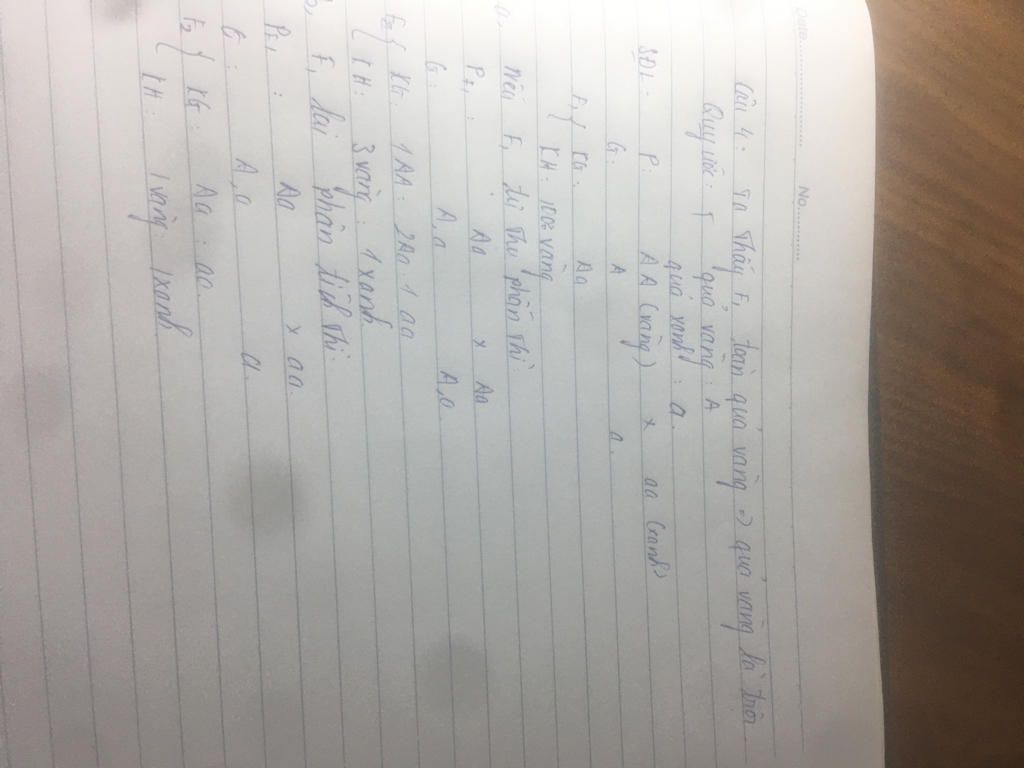 Date............... No...............
Câu 4. Ta thấy F1 toàn quả vàng => quả vàng là trội
Quy ước: quả vàng: A
quả xanh: a
SĐL: P: AA (vàng) x aa (xanh)
G: A a.
F1 { KG: Aa
KH: 100% vàng
a. Nếu F1 tự thụ phấn thì:
P1: Aa x Aa
G: A,a A,a
F2 { KG: 1AA: 2Aa: 1aa
KH: 3 vàng: 1 xanh
b, F1 lai phân tích thì:
P1: Aa x aa.
G: A,a a.
F2 { KG: Aa: aa.
KH: 1 vàng: 1 xanh